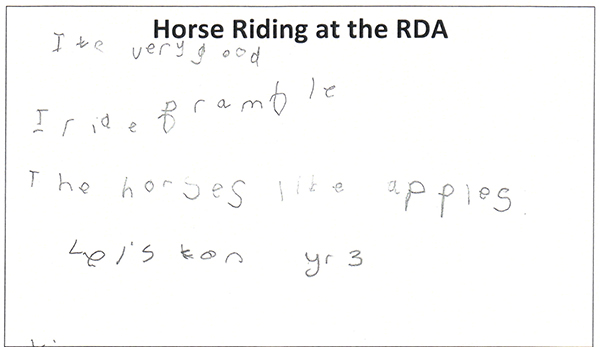 Horse Riding at the RDA
I very good
I ride bramble
The horses like apples.
yr 3